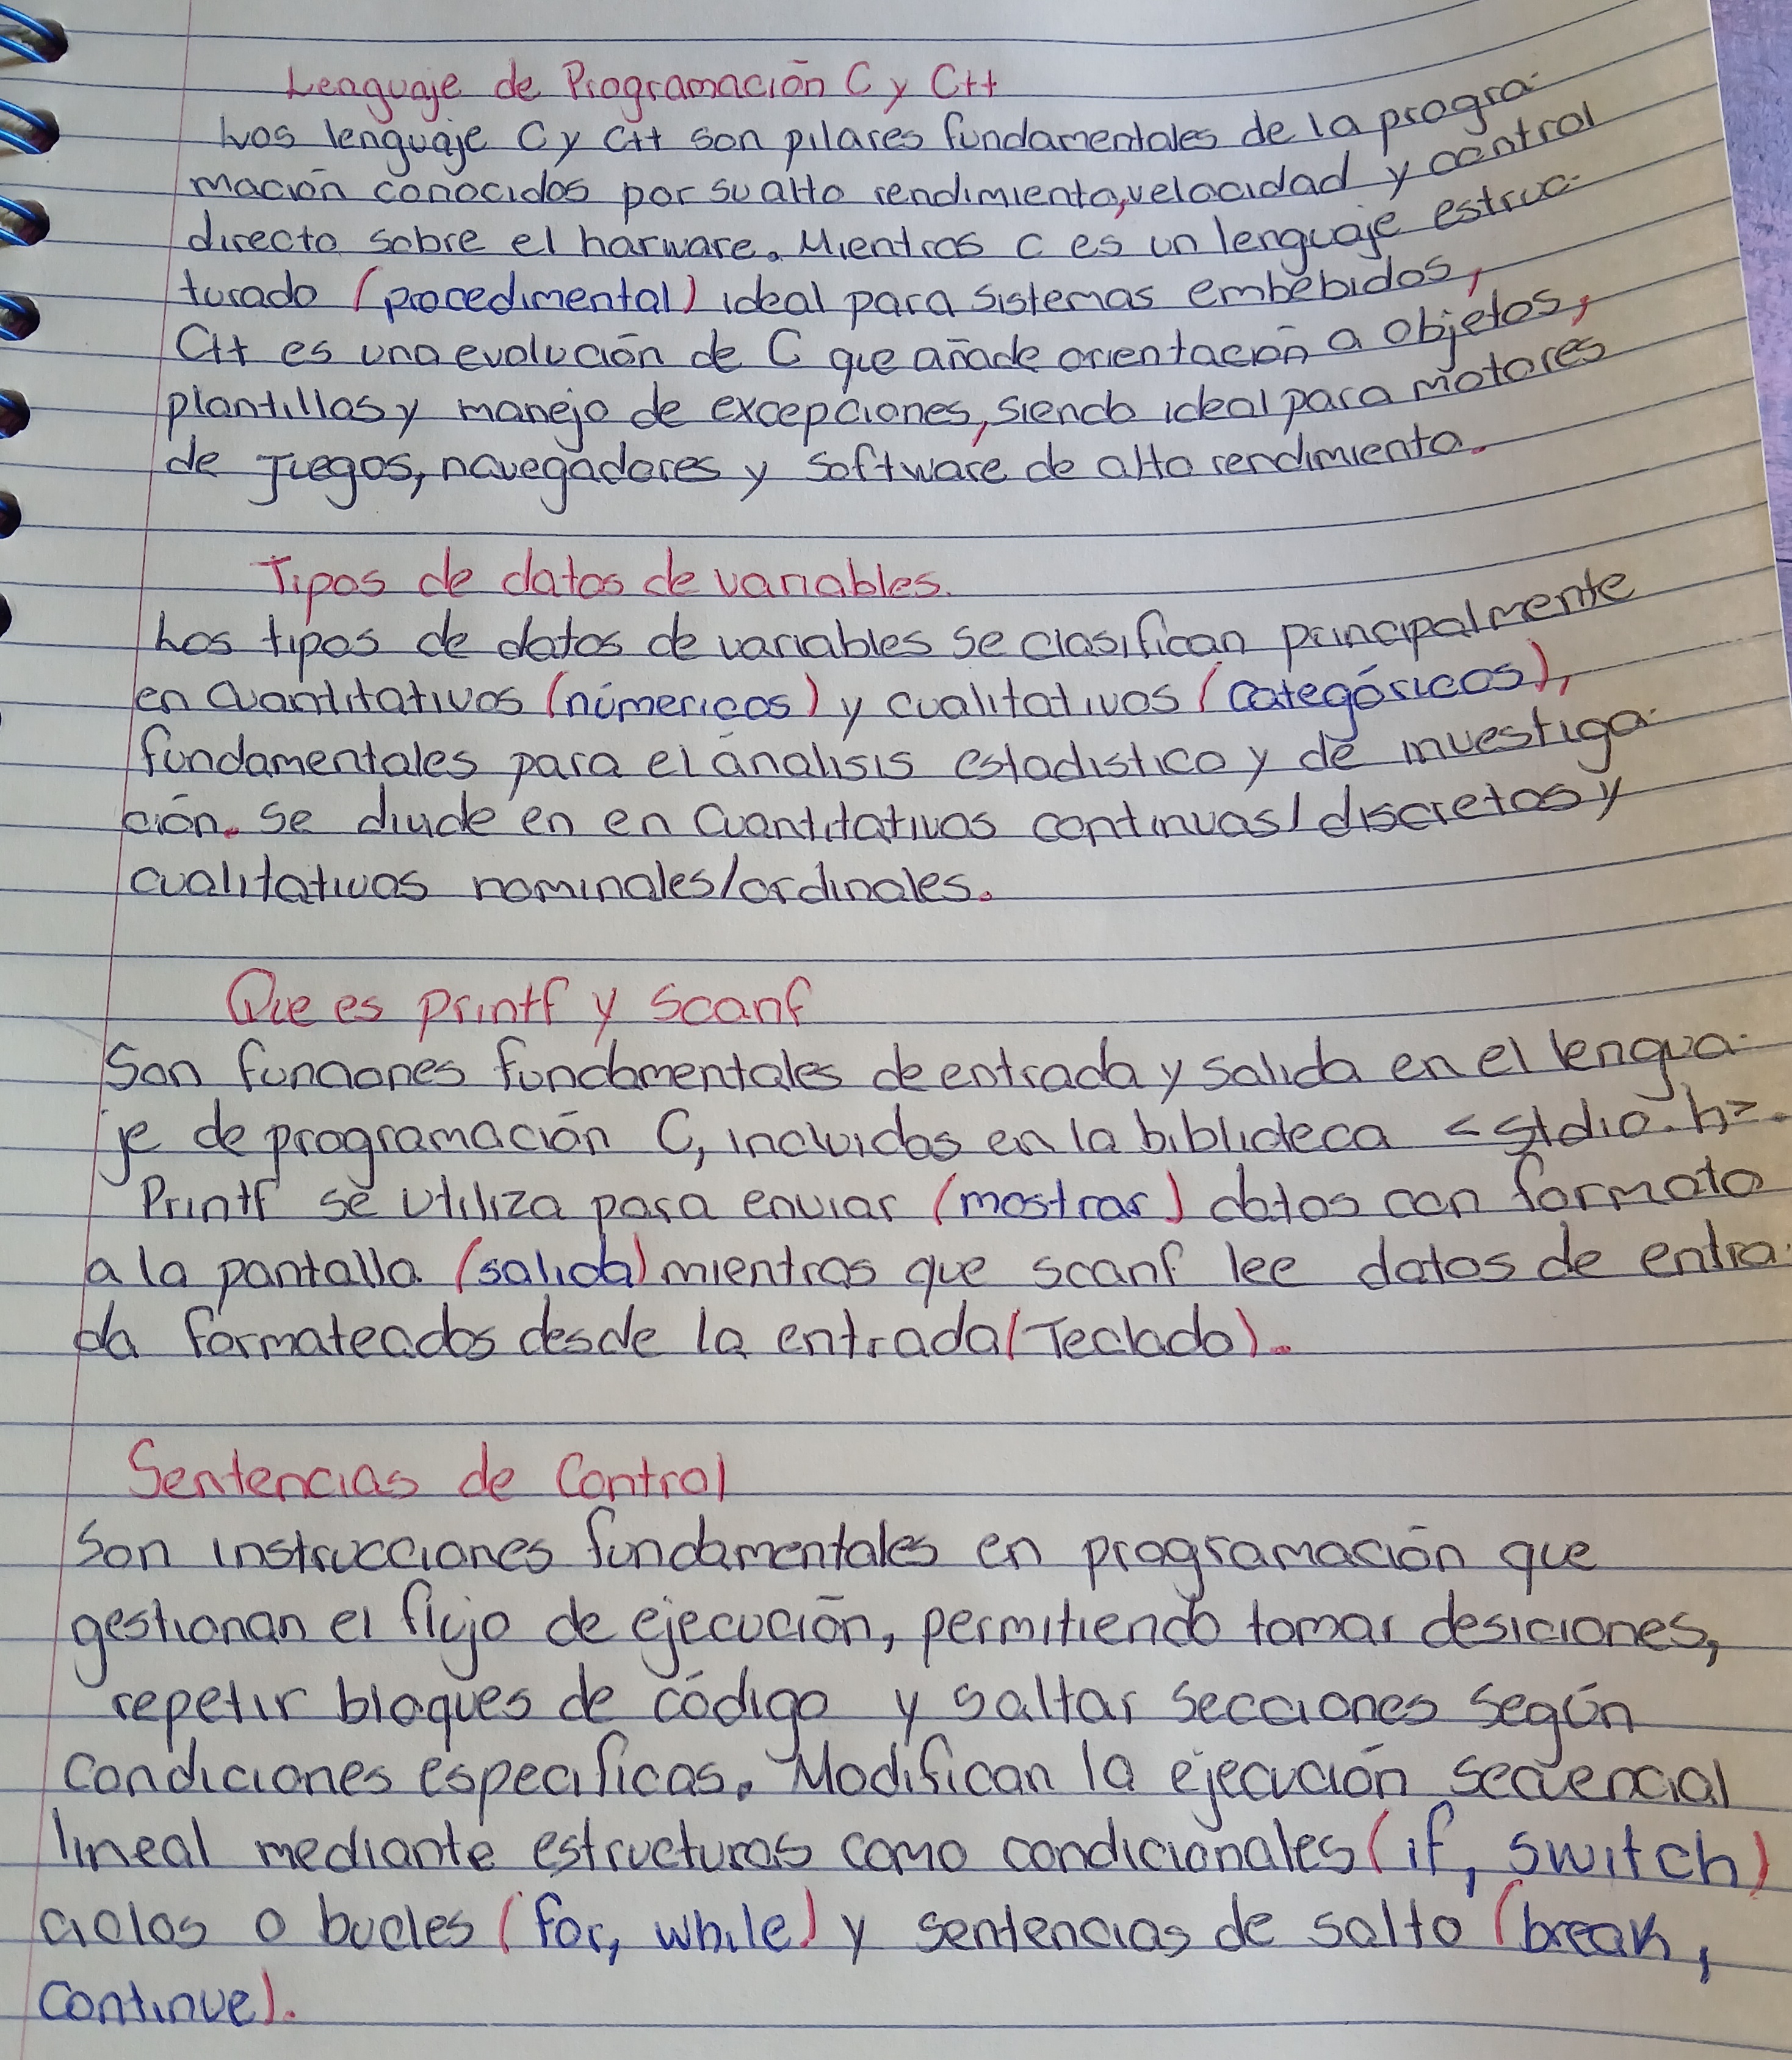 Lenguaje de Programación C y C++
Los lenguaje C y C++ son pilares fundamentales de la progra-
mación conocidos por su alto rendimiento, velocidad y control
directo sobre el harware. Mientras C es un lenguaje estruc-
turado (procedimental) ideal para sistemas embebidos,
C++ es una evolución de C que añade orientación a objetos,
plantillas y manejo de excepciones, siendo ideal para motores
de juegos, navegadores y software de alto rendimiento.
Tipos de datos de variables.
Los tipos de datos de variables se clasifican principalmente
en cuantitativos (númericos) y cualitativos (categóricos),
fundamentales para el ánalisis estadistico y de investiga-
ción. Se divide en en cuantitativos continuas/discretas y
cualitativas nominales/ordinales.
Que es printf y Scanf
Son funciones fundamentales de entrada y salida en el lengua-
je de programación C, incluidos en la biblioteca <stdio.h>.
Printf se utiliza para enviar (mostrar) datos con formato
a la pantalla (salida) mientras que scanf lee datos de entra-
da formateados desde la entrada (Teclado).
Sentencias de Control
Son instrucciones fundamentales en programación que
gestionan el flujo de ejecución, permitiendo tomar desiciones,
repetir bloques de código y saltar secciones según
condiciones especificas. Modifican la ejecución secuencial
lineal mediante estructuras como condicionales (if, switch)
ciclos o bucles (for, while) y sentencias de salto (break,
continue).